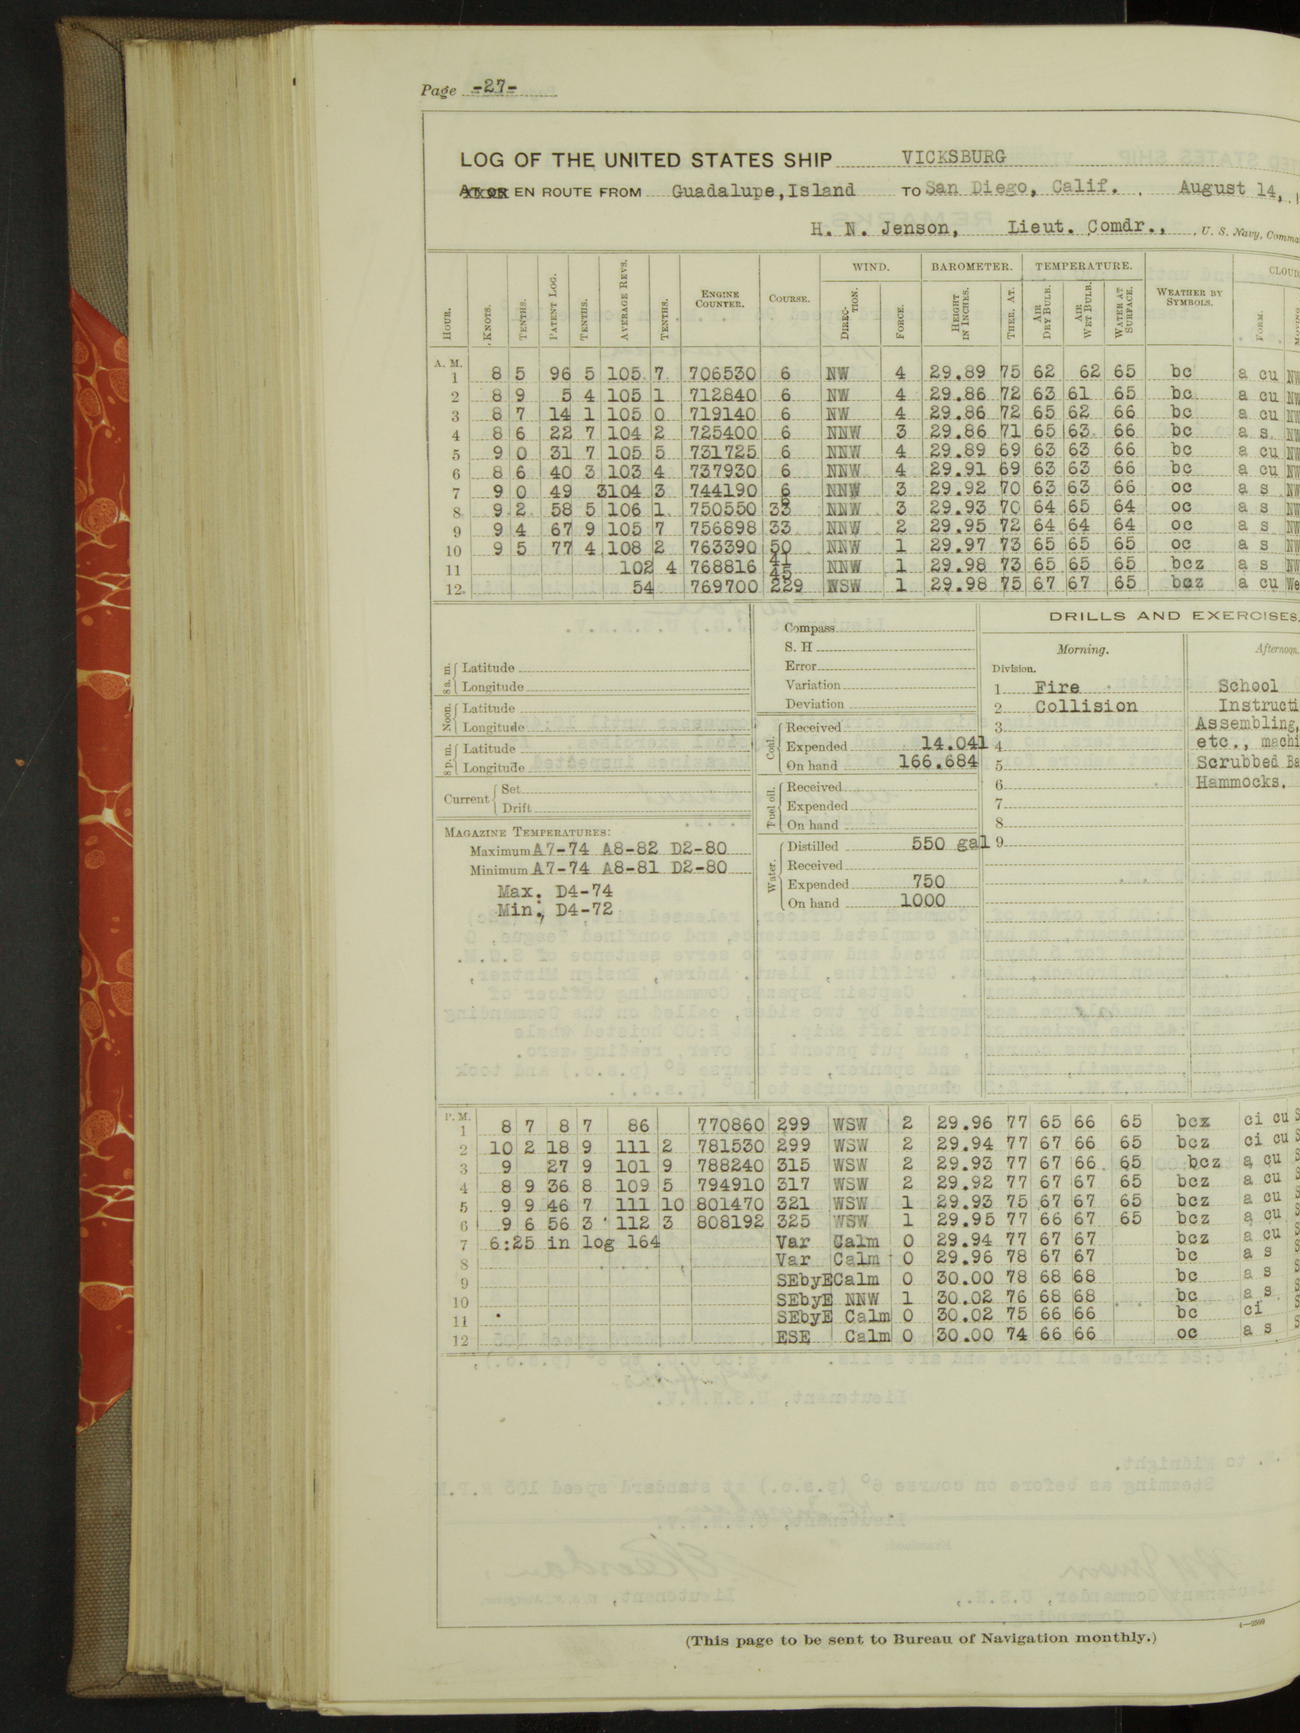 Page -27-
LOG OF THE UNITED STATES SHIP VICKSBURG
AT OR EN ROUTE FROM Guadalupe,Island TO San Diego, Calif. August 14,
H. N. Jenson, Lieut. Comdr., U. S. Navy,
WIND. BAROMETER. TEMPERATURE.
HOUR. KNOTS. TENTHS. PATENT LOG. TENTHS. AVERAGE REVS. TENTHS. ENGINE COUNTER. COURSE. DIRECTION. FORCE. HEIGHT IN INCHES. THER. AT. AIR DRY BULB. AIR WET BULB. WATER AT SURFACE. WEATHER BY SYMBOLS. FORM.
A. M.
1 8 5 96 5 105 7 706530 6 NW 4 29.89 75 62 62 65 bc a cu NW
2 8 9 5 4 105 1 712840 6 NW 4 29.86 72 63 61 65 bc a cu NW
3 8 7 14 1 105 0 719140 6 NW 4 29.86 72 65 62 66 bc a cu NW
4 8 6 22 7 104 2 725400 6 NNW 3 29.86 71 65 63 66 bc a s NW
5 9 0 31 7 105 5 731725 6 NNW 4 29.89 69 63 63 66 bc a cu NW
6 8 6 40 3 103 4 737930 6 NNW 4 29.91 69 63 63 66 bc a cu NW
7 9 0 49 3 104 3 744190 6 NNW 3 29.92 70 63 63 66 oc a s NW
8 9 2 58 5 106 1 750550 33 NNW 3 29.93 70 64 65 64 oc a s NW
9 9 4 67 9 105 7 756898 33 NNW 2 29.95 72 64 64 64 oc a s NW
10 9 5 77 4 108 2 763390 50 NNW 1 29.97 73 65 65 65 oc a s NW
11 102 4 768816 41 45 NNW 1 29.98 73 65 65 65 bcz a s NW
12 54 769700 229 WSW 1 29.98 75 67 67 65 bcz a cu We
8 a. m. Latitude
Longitude
Noon. Latitude
Longitude
8 p. m. Latitude
Longitude
Current Set
Drift
MAGAZINE TEMPERATURES:
Maximum A7-74 A8-82 D2-80
Minimum A7-74 A8-81 D2-80
Max. D4-74
Min. D4-72
Compass
S. H
Error
Variation
Deviation
Coal. Received
Expended 14.041
On hand 166.684
Fuel oil. Received
Expended
On hand
Water. Distilled 550 gal
Received
Expended 750
On hand 1000
DRILLS AND EXERCISES.
Morning. Afternoon.
Division.
1 Fire School
2 Collision Instructi
3 Assembling,
4 etc., machi
5 Scrubbed Ba
6 Hammocks.
7
8
9
P. M.
1 8 7 8 7 86 770860 299 WSW 2 29.96 77 65 66 65 bcz ci cu S
2 10 2 18 9 111 2 781530 299 WSW 2 29.94 77 67 66 65 bcz ci cu S
3 9 27 9 101 9 788240 315 WSW 2 29.93 77 67 66 65 bcz a cu S
4 8 9 36 8 109 5 794910 317 WSW 2 29.92 77 67 67 65 bcz a cu S
5 9 9 46 7 111 10 801470 321 WSW 1 29.93 75 67 67 65 bcz a cu S
6 9 6 56 3 112 3 808192 325 WSW 1 29.95 77 66 67 65 bcz a cu S
7 6:25 in log 164 Var Calm 0 29.94 77 67 67 bcz a cu S
8 Var Calm 0 29.96 78 67 67 bc a s S
9 SEbyE Calm 0 30.00 78 68 68 bc a s S
10 SEbyE NNW 1 30.02 76 68 68 bc a s S
11 SEbyE Calm 0 30.02 75 66 66 bc ci S
12 ESE Calm 0 30.00 74 66 66 oc a s S
(This page to be sent to Bureau of Navigation monthly.)